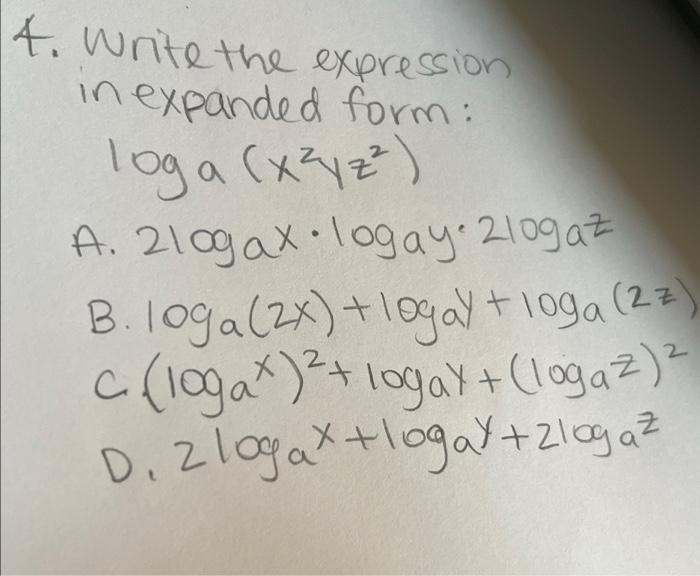 4. Write the expression
in expanded form:
log a (x²yz²)
A. 2logax · logay · 2logaz
B. logₐ(2x) + logₐy + logₐ(2z)
C. (logₐx)² + logₐy + (logₐz)²
D. 2logₐx + logₐy + 2logₐz